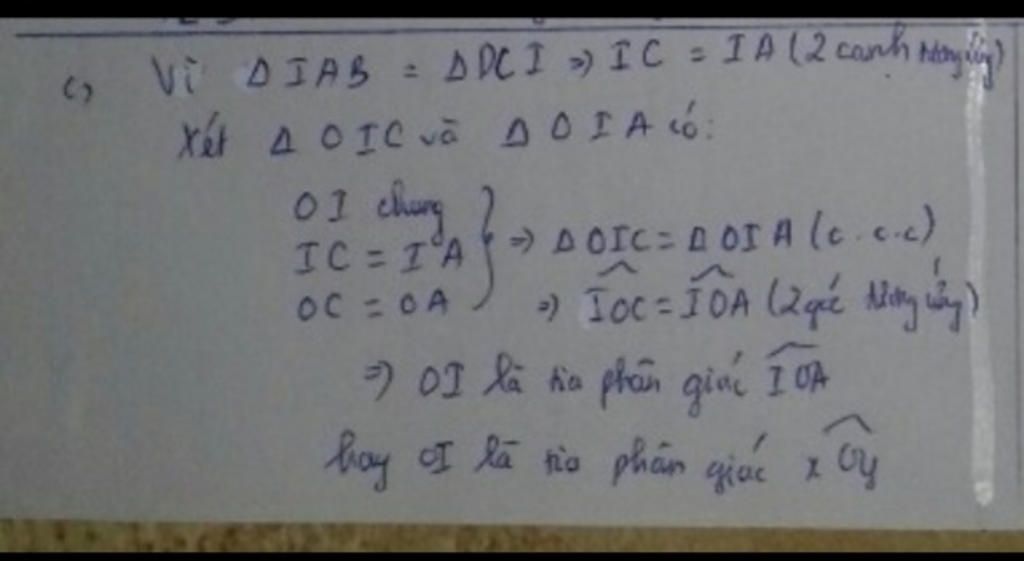 c) Vì Δ IAB = Δ DCI => IC = IA (2 cạnh tương ứng)
Xét Δ OIC và Δ OIA có:
OI chung
IC = IA
OC = OA
=> Δ OIC = Δ OIA (c.c.c)
=> \widehat{IOC} = \widehat{IOA} (2 góc tương ứng)
=> OI là tia phân giác \widehat{IOA}
hay OI là tia phân giác \widehat{xOy}